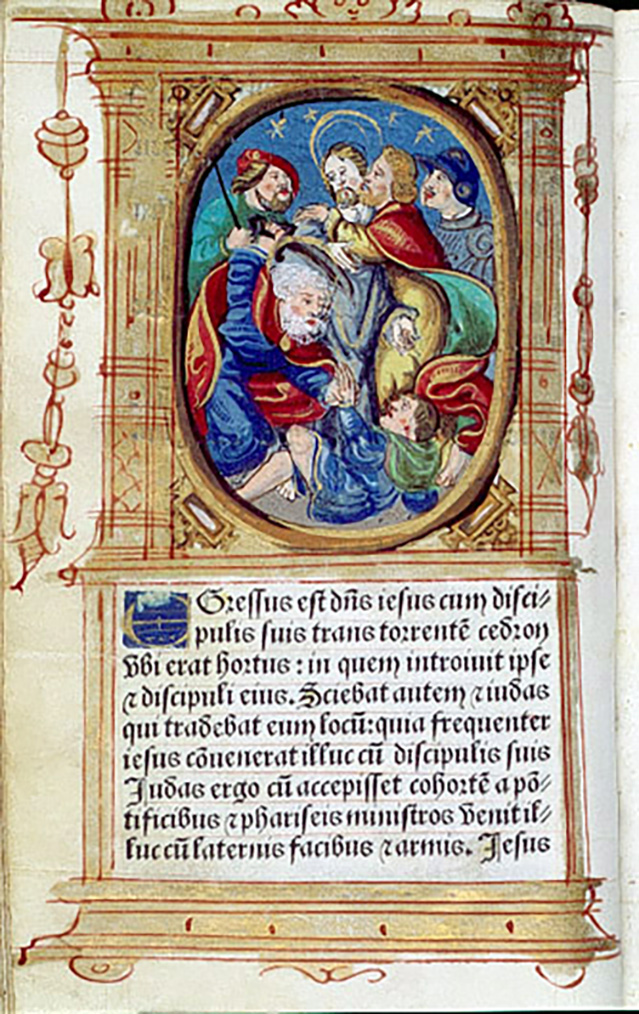 EGressus est dñs iesus cum disci⸗
pulis suis trans torrentē cedron
Vbi erat hortus : in quem introiuit ipse
⁊ discipuli eius. Sciebat autem ⁊ iudas
qui tradebat eum locū: quia frequenter
iesus cōuenerat illuc cū discipulis suis
Judas ergo cū accepisset cohortē a pō⸗
tificibus ⁊ phariseis ministros Venit il⸗
luc cū laternis facibus ⁊ armis. Jesus